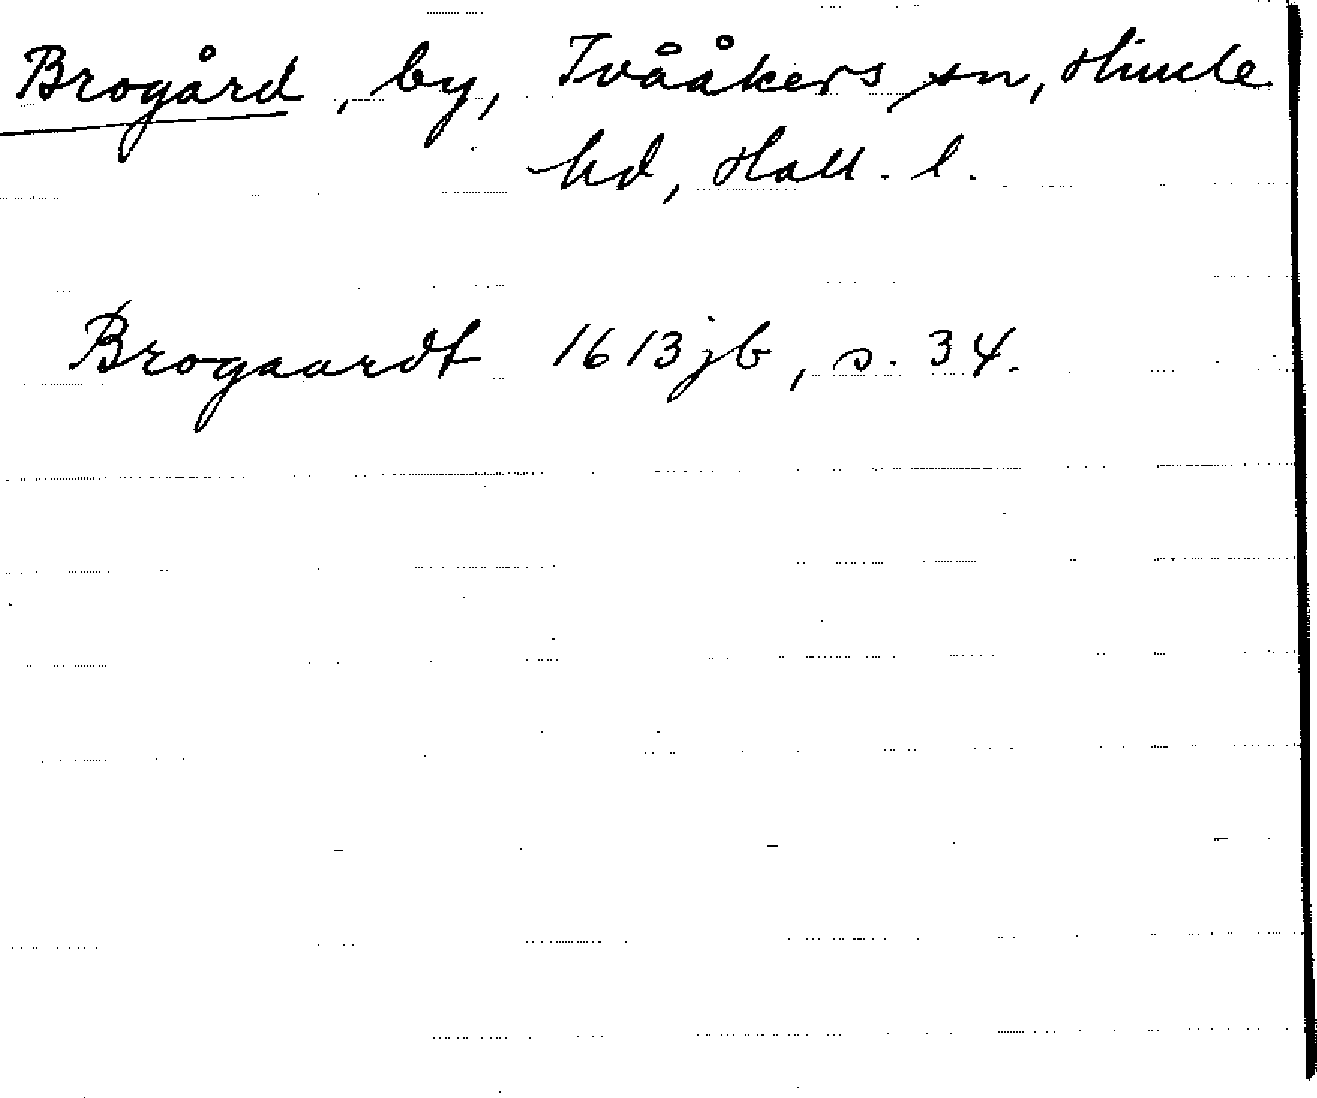 Brogård, by, Tvååkers sn, Himle
hd, Hall. l.
Brogaardt 1613 jb, s. 34.